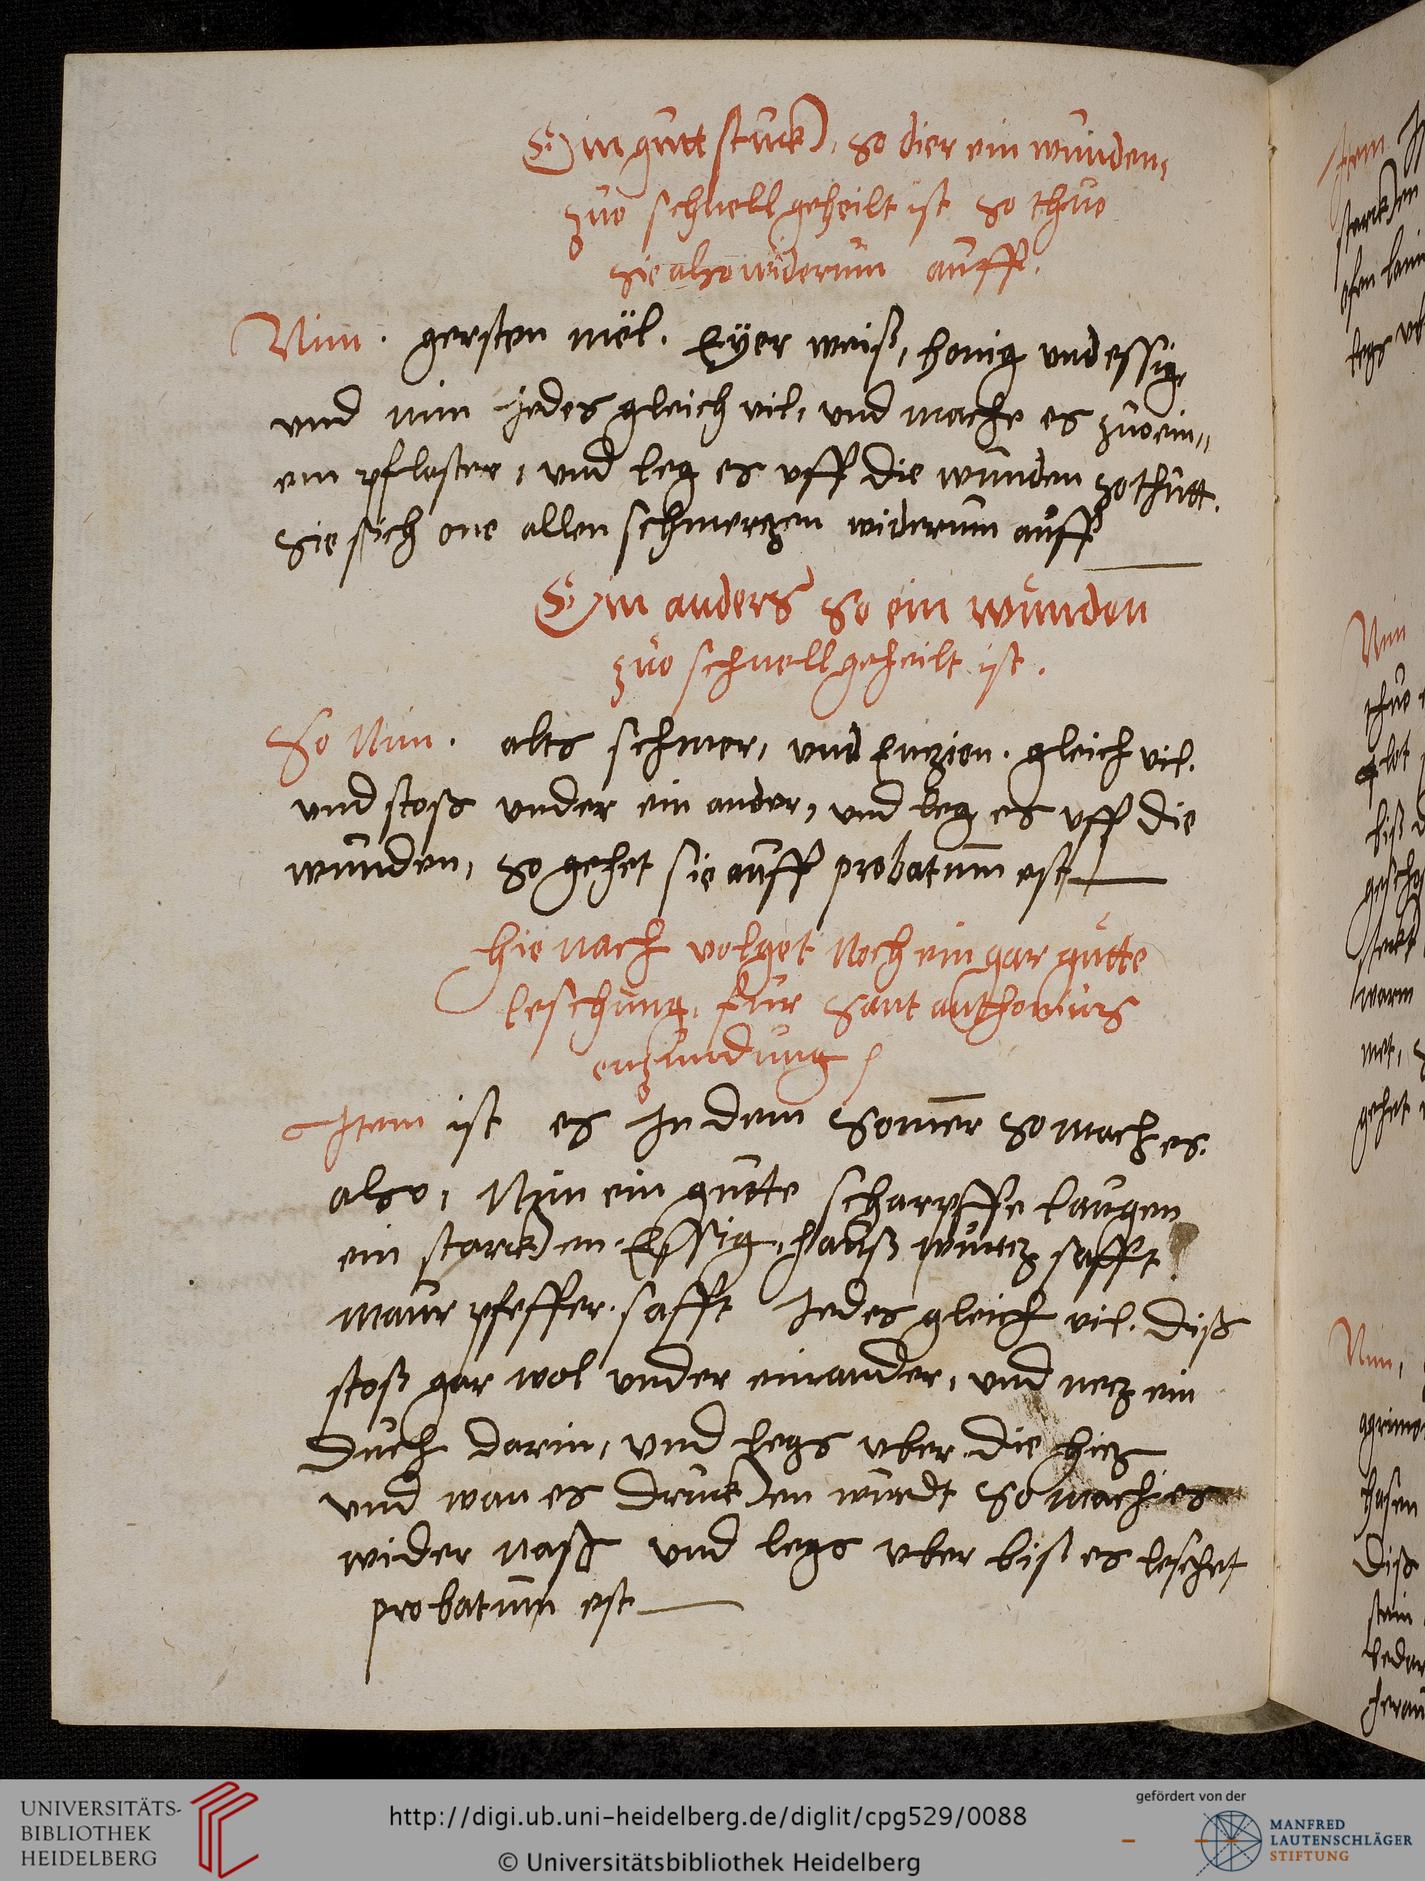 Ein gutt stuck, so dier ein wunden,
zuo schnell geheilt ist so thuo
sie also widerum auff.
Nim. gersten mel. Eÿer weiß, honig und essig,
und nim iedes gleich vil, und mache es zuo ein„
em pflaster, und leg es uff die wunden so thutt.
sie sich one allen schmerzen widerum auff
Ein anders so ein wunden
zuo schnell geheilt ist.
So Nim. alts schmer, und Enzien. gleich vil.
und stoß under ein ander, und leg es uff die
wunden, so gehet sie auff probatum est
hie nach volget noch ein gar gutte
leschung, fur Sant anthonius
enzundung
Item ist es in dem Somer so mach es.
also, Nim ein gutte scharpffe laugen
ein starcken Essig, hauß wurtz safft
maur pfeffer. safft iedes gleich vil. diß
stoß gar wol under einander, und netz ein
duch darin, und legs uber die hitz
und wan es drucken wurdt so mach es
wider naß und legs uber biß es leschet
probatum est
Item
starcken
Nim
thuo
biß
warm
gehet
Nim,
hasen
diß
stein
UNIVERSITÄTS-
BIBLIOTHEK
HEIDELBERG
http://digi.ub.uni-heidelberg.de/diglit/cpg529/0088
© Universitätsbibliothek Heidelberg
gefördert von der
MANFRED
LAUTENSCHLÄGER
STIFTUNG